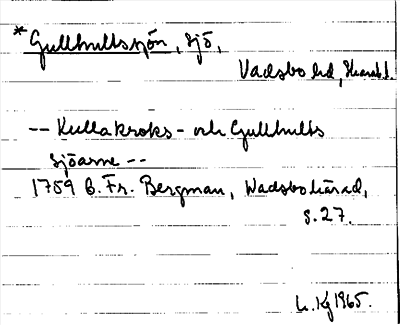 * Gullhultssjön, sjö,
Vadsbo hd, Skarab. l.
-- Kulla kroks- och Gullhults
sjöarne --
1759 B. Fr. Bergman, Wadsbo härad,
s. 27.
1965.